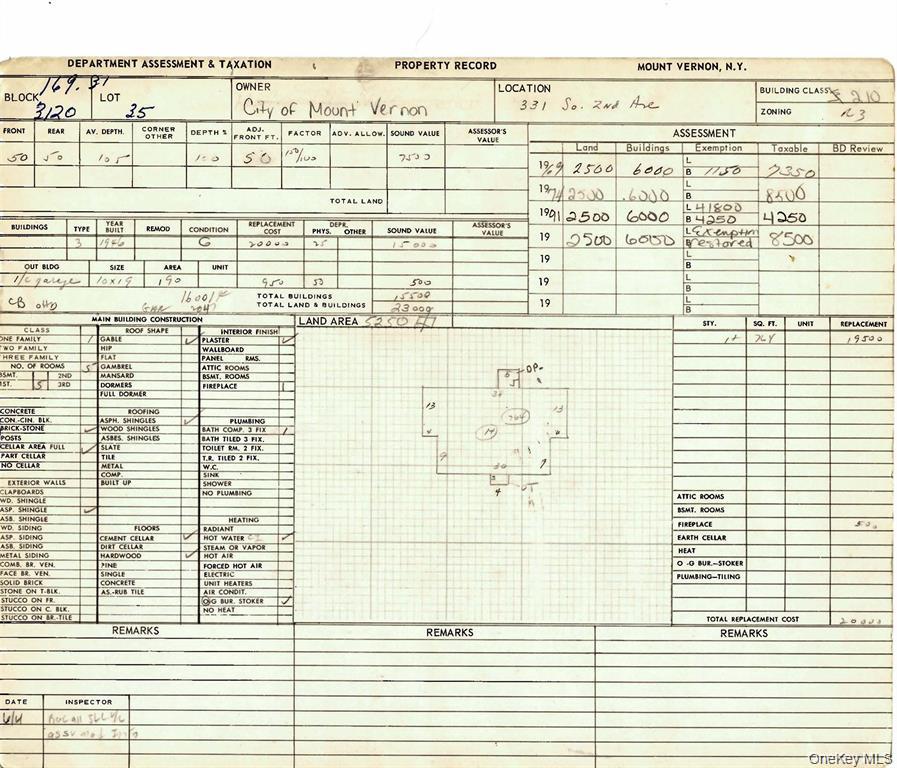 DEPARTMENT ASSESSMENT & TAXATION PROPERTY RECORD MOUNT VERNON, N.Y.
BLOCK 169.31 3120 LOT 35 OWNER City of Mount Vernon LOCATION 331 So. 2nd Ave BUILDING CLASS 210
ZONING R3
FRONT REAR AV. DEPTH. CORNER OTHER DEPTH % ADJ. FRONT FT. FACTOR ADV. ALLOW. SOUND VALUE ASSESSOR'S VALUE
50 50 105 100 50 150/100 7500
TOTAL LAND
ASSESSMENT
Land Buildings Exemption Taxable BD Review
1969 2500 6000 L B 1150 7350
1974 2500 6000 L B 8500
1991 2500 6000 L 41800 B 4250 4250
19 2500 6000 L Exemption B restored 8500
19 L B
19 L B
19 L B
BUILDINGS TYPE YEAR BUILT REMOD CONDITION REPLACEMENT COST DEPR. PHYS. OTHER SOUND VALUE ASSESSOR'S VALUE
3 1946 G 20000 25 15000
OUT BLDG SIZE AREA UNIT
1/c garage 10x19 190 950 50 500
CB OHD
TOTAL BUILDINGS 15500
TOTAL LAND & BUILDINGS 23000
MAIN BUILDING CONSTRUCTION
CLASS
ONE FAMILY 1
TWO FAMILY
THREE FAMILY
NO. OF ROOMS 5
BSMT. 2ND
1ST. 5 3RD
CONCRETE
CON.-CIN. BLK.
BRICK-STONE
POSTS
CELLAR AREA FULL
PART CELLAR
NO CELLAR
EXTERIOR WALLS
CLAPBOARDS
WD. SHINGLE
ASP. SHINGLE
ASB. SHINGLE
WD. SIDING
ASP. SIDING
ASB. SIDING
METAL SIDING
COMB. BR. VEN.
FACE BR. VEN.
SOLID BRICK
STONE ON T-BLK.
STUCCO ON FR.
STUCCO ON C. BLK.
STUCCO ON BR.-TILE
ROOF SHAPE
GABLE
HIP
FLAT
GAMBREL
MANSARD
DORMERS
FULL DORMER
ROOFING
ASPH. SHINGLES
WOOD SHINGLES
ASBES. SHINGLES
SLATE
TILE
METAL
COMP.
BUILT UP
FLOORS
CEMENT CELLAR
DIRT CELLAR
HARDWOOD
PINE
SINGLE
CONCRETE
AS.-RUB TILE
INTERIOR FINISH
PLASTER
WALLBOARD
PANEL RMS.
ATTIC ROOMS
BSMT. ROOMS
FIREPLACE 1
PLUMBING
BATH COMP. 3 FIX 1
BATH TILED 3 FIX.
TOILET RM. 2 FIX.
T.R. TILED 2 FIX.
W.C.
SINK
SHOWER
NO PLUMBING
HEATING
RADIANT
HOT WATER CI
STEAM OR VAPOR
HOT AIR
FORCED HOT AIR
ELECTRIC
UNIT HEATERS
AIR CONDIT.
O-G BUR. STOKER
NO HEAT
LAND AREA 5250
OP
13 764 13
9 30 9
4
STY. SQ. FT. UNIT REPLACEMENT
1+ 764 19500
ATTIC ROOMS
BSMT. ROOMS
FIREPLACE 500
EARTH CELLAR
HEAT
O-G BUR.—STOKER
PLUMBING—TILING
TOTAL REPLACEMENT COST 20000
REMARKS REMARKS REMARKS
DATE INSPECTOR
OneKey MLS